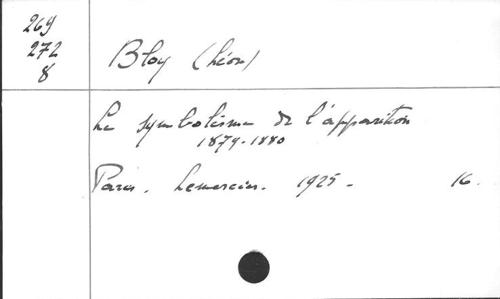 269
272
8
Bloy (Léon)
Le symbolisme de l'apparition
1879-1880
Paris. Lemercier. 1925 - 16.